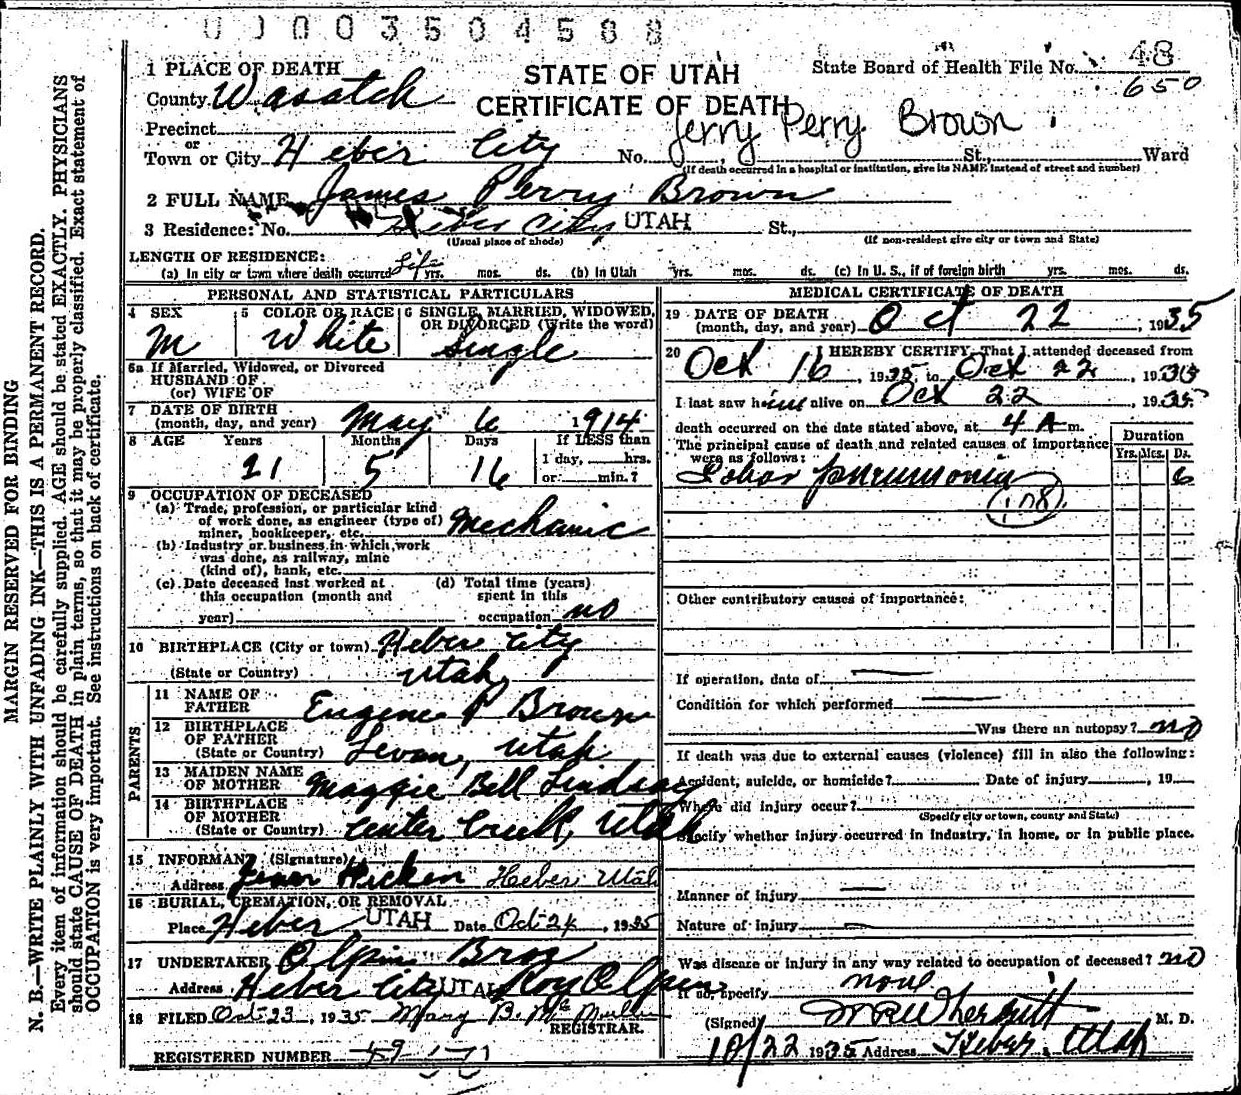 0 0 0 0 3 5 0 4 5 8 8
MARGIN RESERVED FOR BINDING
N. B.—WRITE PLAINLY WITH UNFADING INK—THIS IS A PERMANENT RECORD.
Every item of information should be carefully supplied. AGE should be stated EXACTLY. PHYSICIANS
should state CAUSE OF DEATH in plain terms, so that it may be properly classified. Exact statement of
OCCUPATION is very important. See instructions on back of certificate.
STATE OF UTAH
CERTIFICATE OF DEATH
State Board of Health File No. 48
650
1 PLACE OF DEATH
County Wasatch
Precinct
or
Town or City Heber City No. St., Ward
Jerry Perry Brown
(If death occurred in a hospital or institution, give its NAME instead of street and number)
2 FULL NAME James Perry Brown
3 Residence: No. Heber City UTAH St.,
(Usual place of abode) (If non-resident give city or town and State)
LENGTH OF RESIDENCE:
(a) In city or town where death occurred Life yrs. mos. ds. (b) In Utah yrs. mos. ds. (c) In U. S., if of foreign birth yrs. mos. ds.
PERSONAL AND STATISTICAL PARTICULARS
4 SEX M
5 COLOR OR RACE White
6 SINGLE, MARRIED, WIDOWED, OR DIVORCED (Write the word) Single
6a If Married, Widowed, or Divorced
HUSBAND OF
(or) WIFE OF
7 DATE OF BIRTH
(month, day, and year) May 6 1914
8 AGE Years Months Days If LESS than
21 5 16 1 day, hrs.
or min.?
9 OCCUPATION OF DECEASED
(a) Trade, profession, or particular kind
of work done, as engineer (type of)
miner, bookkeeper, etc. Mechanic
(b) Industry or business in which work
was done, as railway, mine
(kind of), bank, etc.
(c) Date deceased last worked at
this occupation (month and
year)
(d) Total time (years)
spent in this
occupation no
10 BIRTHPLACE (City or town) Heber City
(State or Country) Utah
PARENTS
11 NAME OF
FATHER Eugene P Brown
12 BIRTHPLACE
OF FATHER
(State or Country) Levan, Utah
13 MAIDEN NAME
OF MOTHER Maggie Bell Lindsay
14 BIRTHPLACE
OF MOTHER
(State or Country) Center Creek, Utah
15 INFORMANT (Signature)
Address Hicken Heber Utah
16 BURIAL, CREMATION, OR REMOVAL
Place Heber UTAH Date Oct 24, 1935
17 UNDERTAKER Olpin Bros
Address Heber City UTAH Roy Olpin
18 FILED Oct 23, 1935 Mary B. McMullin
REGISTRAR.
REGISTERED NUMBER 49
MEDICAL CERTIFICATE OF DEATH
19 DATE OF DEATH
(month, day, and year) Oct 22, 1935
20 I HEREBY CERTIFY, That I attended deceased from
Oct 16, 1935 to Oct 22, 1935
I last saw him alive on Oct 22, 1935
death occurred on the date stated above, at 4 A m.
The principal cause of death and related causes of importance
were as follows:
Duration
Yrs. Mos. Ds.
Lobar pneumonia 6
(108)
Other contributory causes of importance:
If operation, date of
Condition for which performed
Was there an autopsy? no
If death was due to external causes (violence) fill in also the following:
Accident, suicide, or homicide? Date of injury, 19
Where did injury occur?
(Specify city or town, county and State)
Specify whether injury occurred in industry, in home, or in public place.
Manner of injury
Nature of injury
Was disease or injury in any way related to occupation of deceased? no
If so, specify none
(Signed) M. D.
10/22 1935 Address Heber, Utah